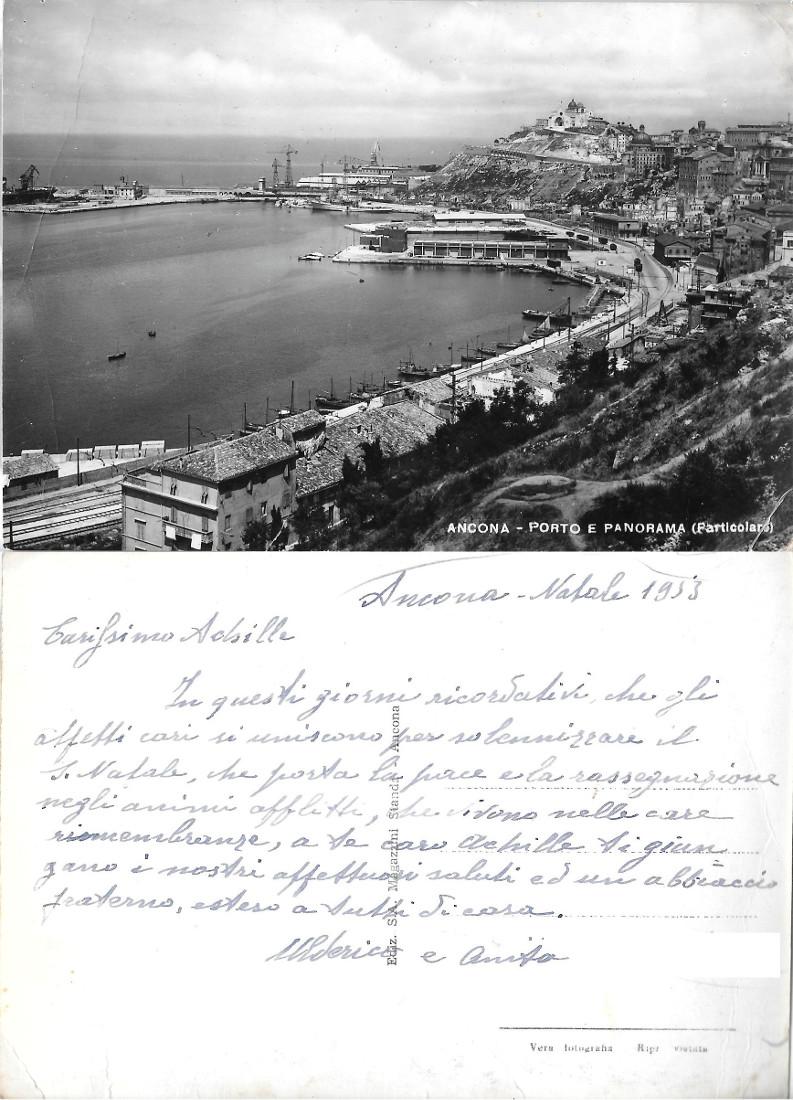 ANCONA - PORTO E PANORAMA (Particolare)
Ancona - Natale 1953
Carissimo Achille
In questi giorni ricordativi, che gli
affetti cari si uniscono per solennizzare il
S. Natale, che porta la pace e la rassegnazione
negli animi afflitti, che vivono nelle care
rimembranze, a te caro Achille ti giun
gano i nostri affettuosi saluti ed un abbraccio
fraterno, estero a tutti di casa.
Uderico e Anita
Ediz. S.A. Magazzini Standa - Ancona
Vera fotografia Ripr vietata